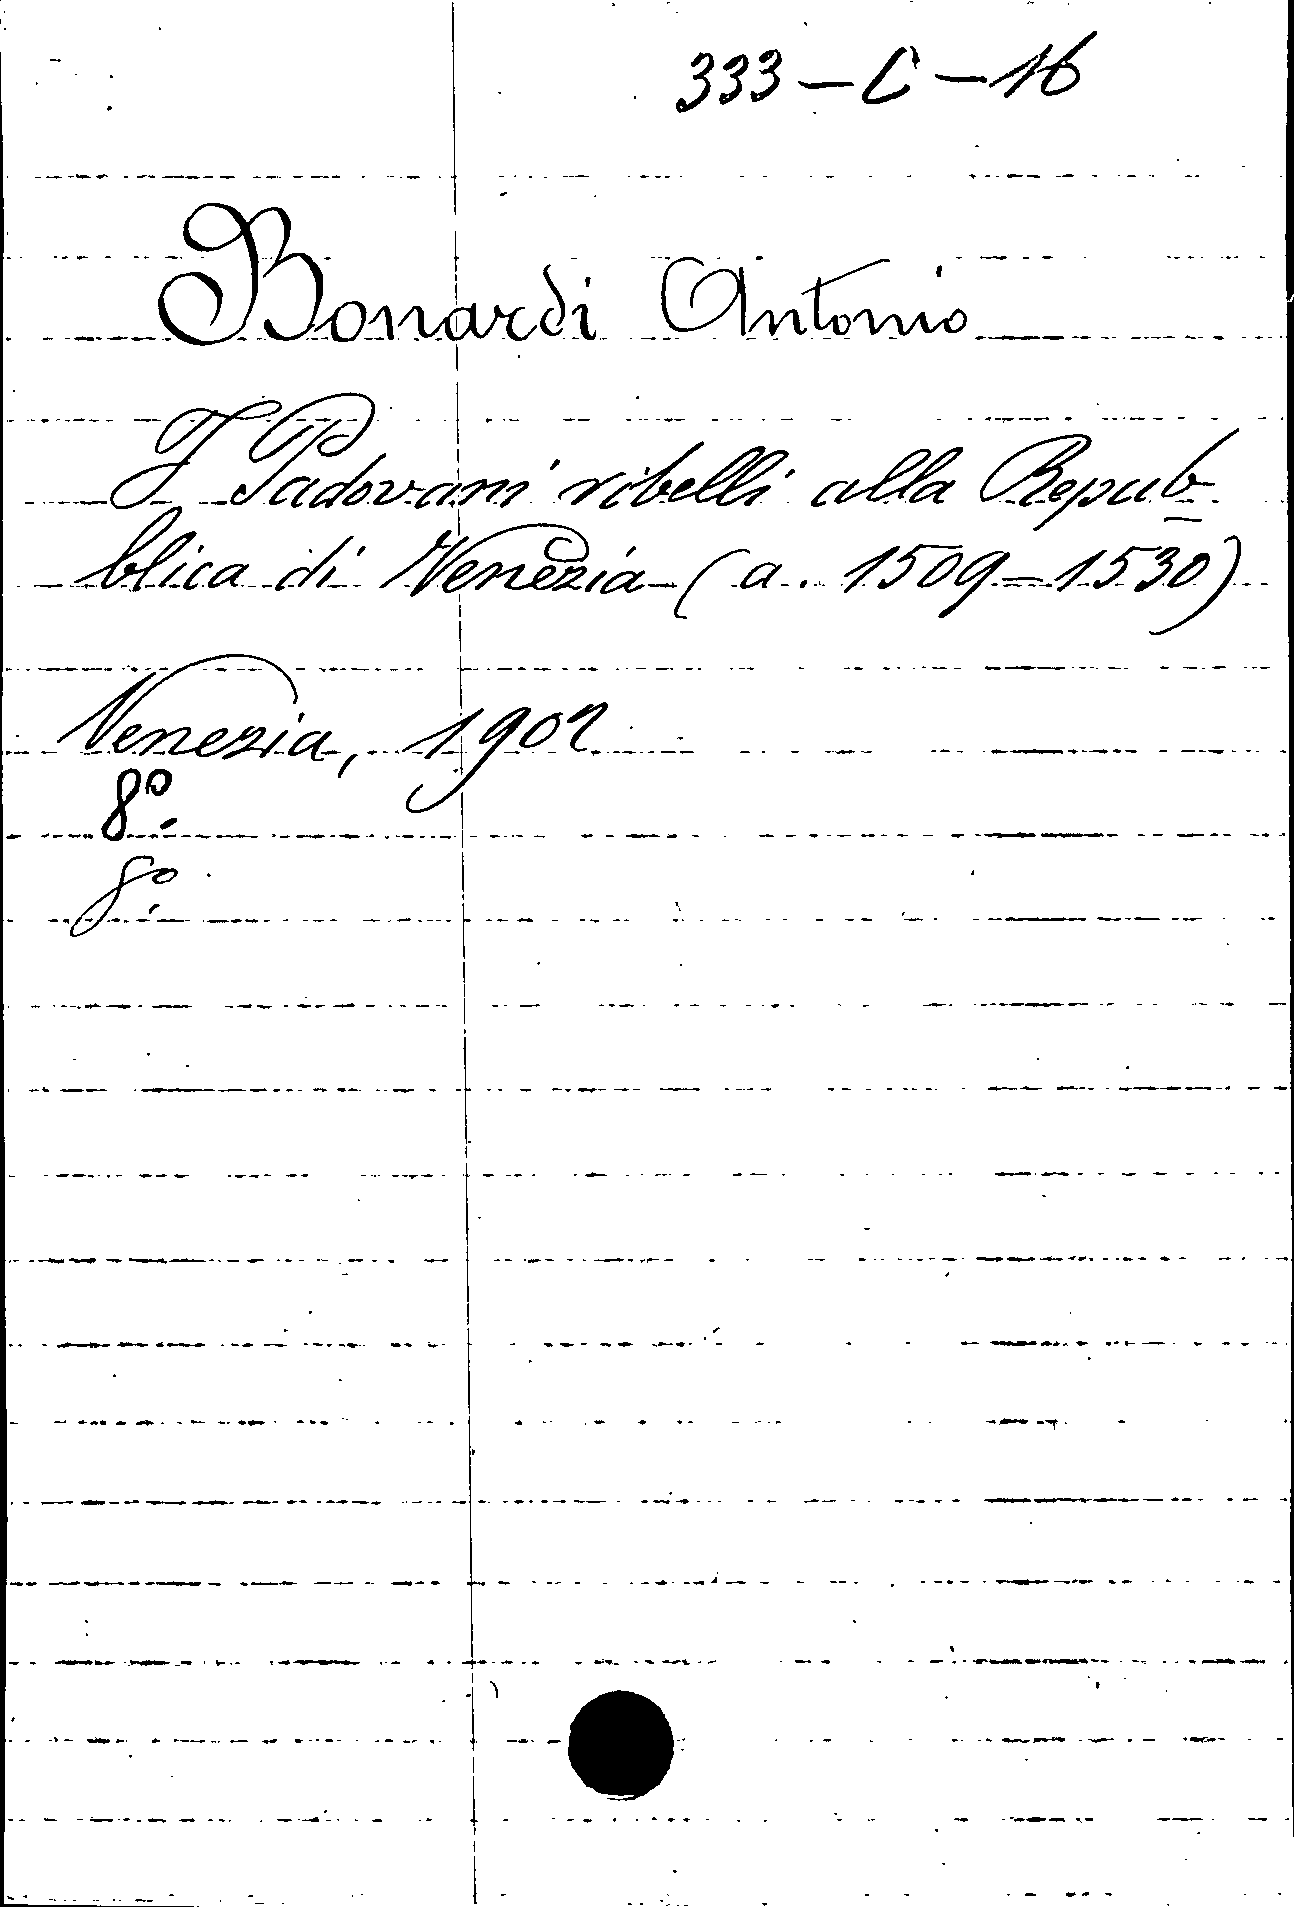 333-C-16
Bonardi Antonio
I Padovani ribelli alla Repub-
blica di Venezia (a. 1509-1530)
Venezia, 1902
8º.
8º.